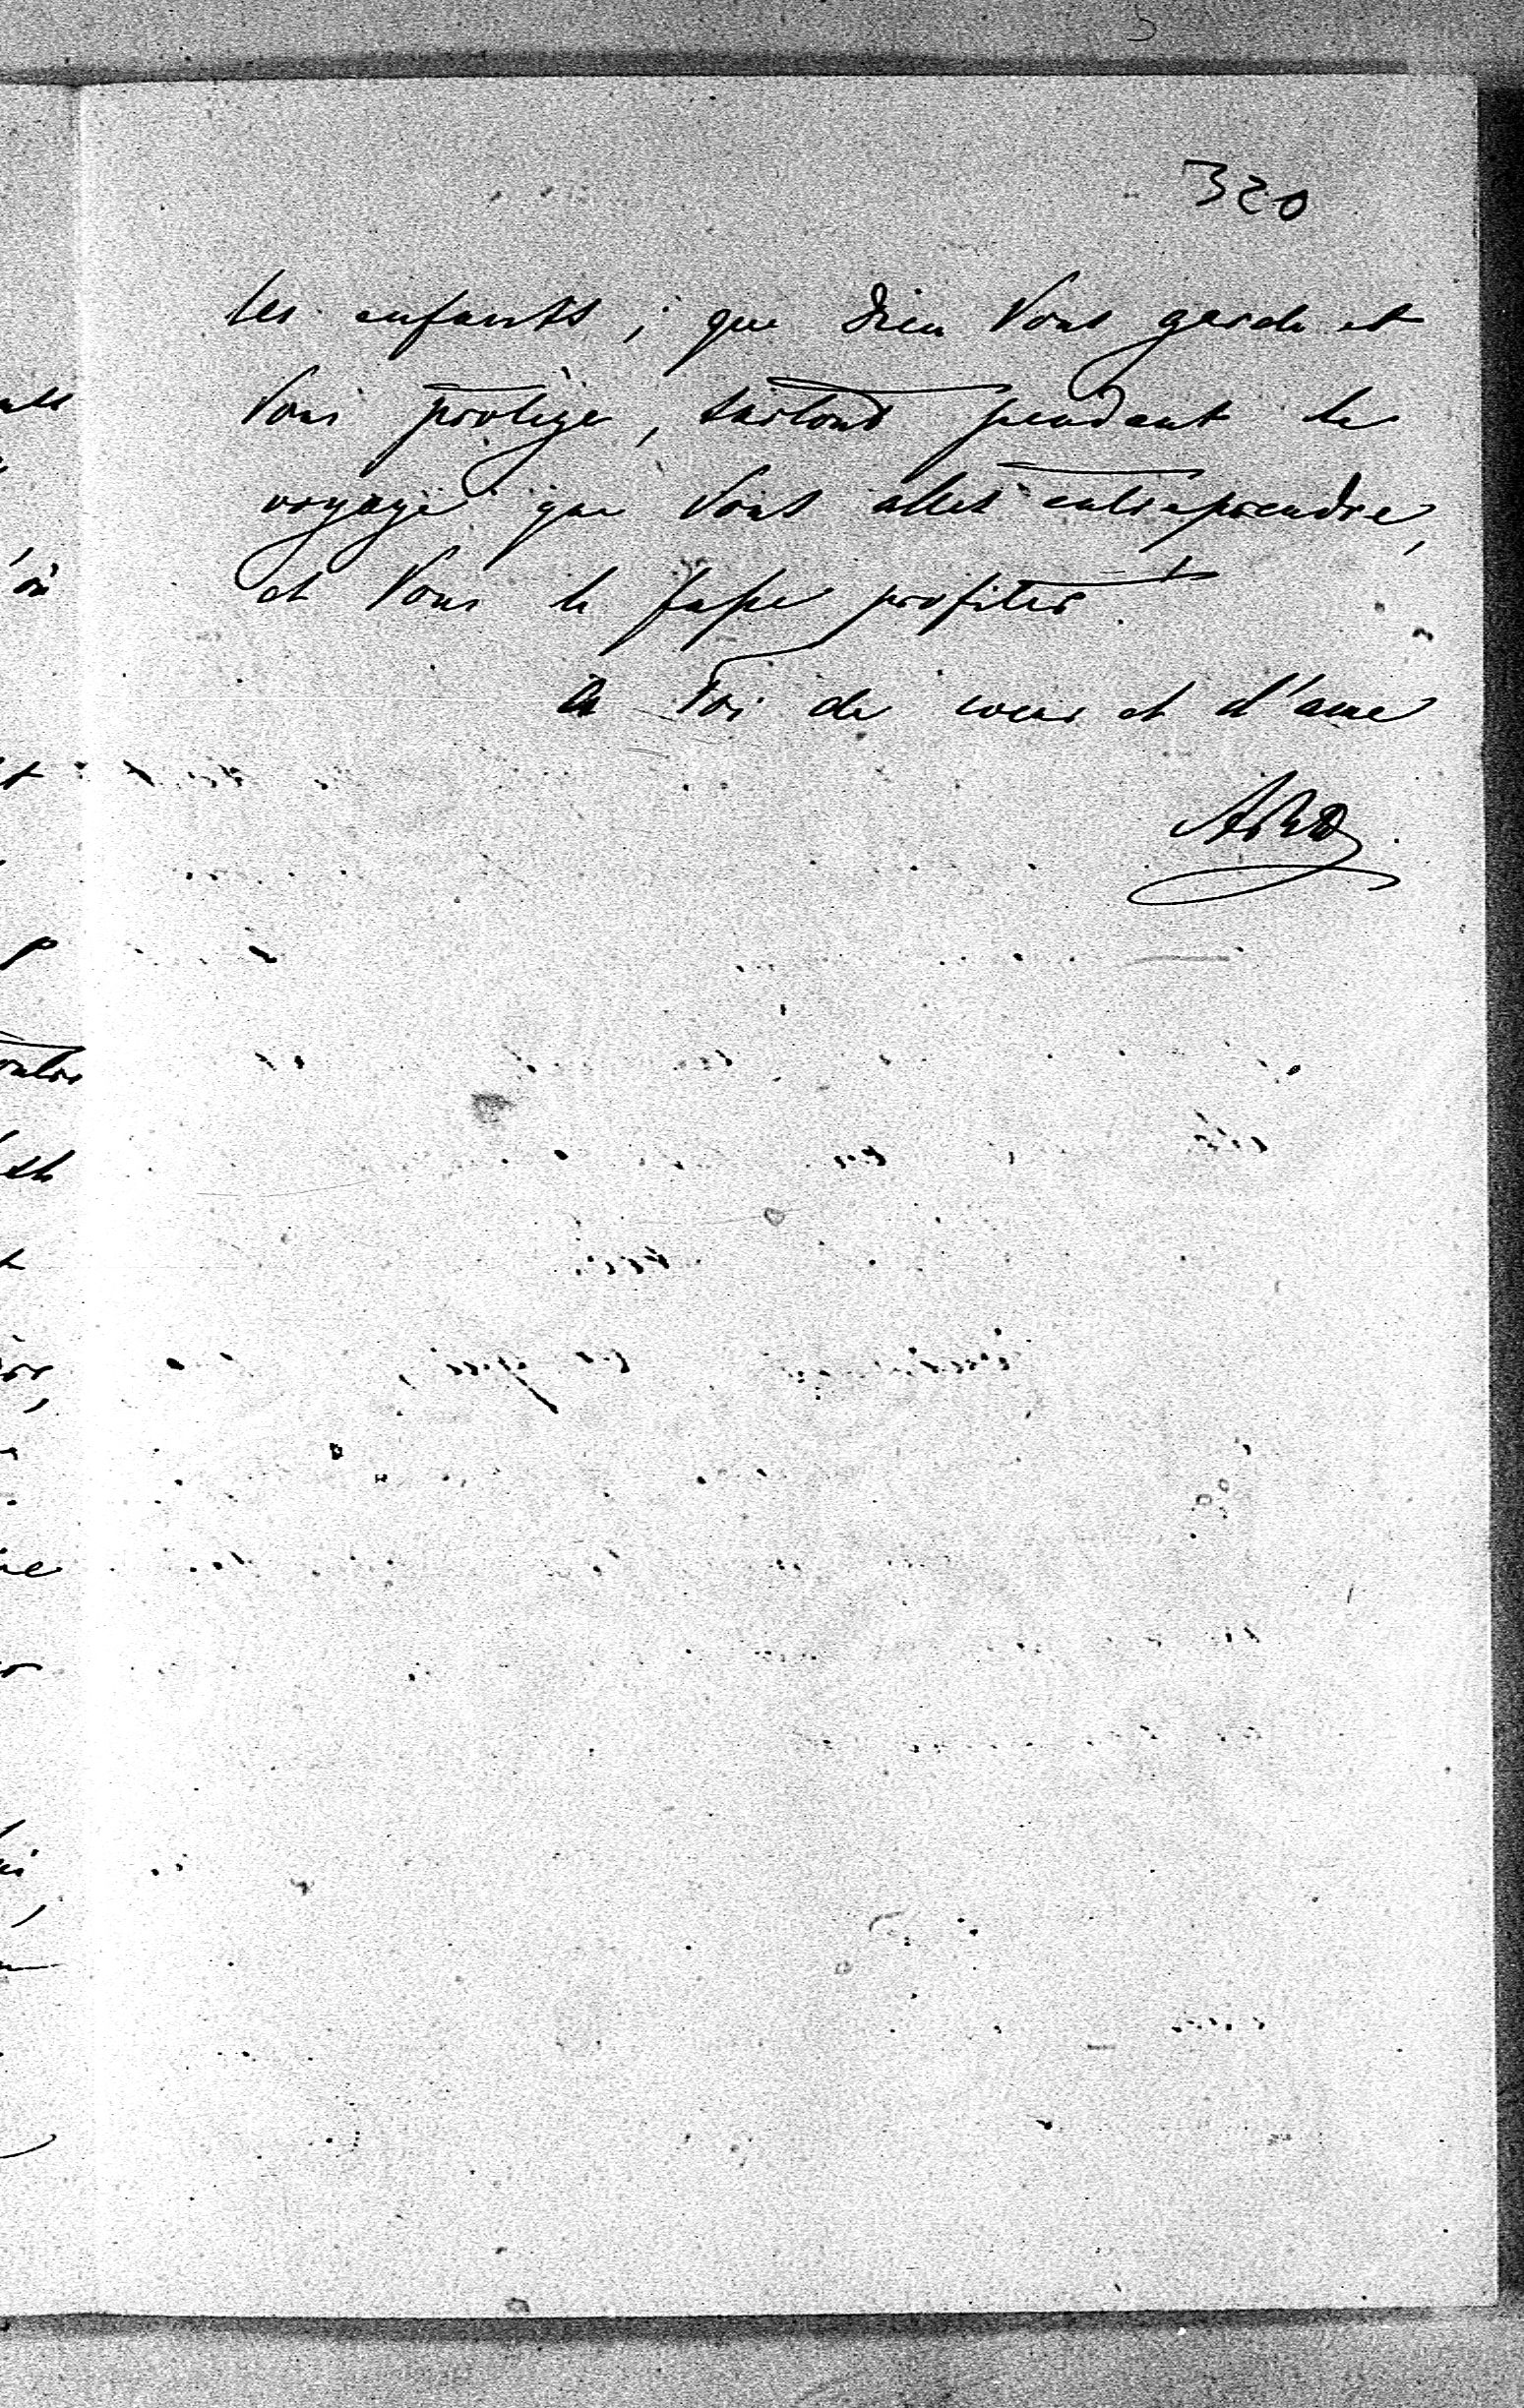 320
les enfants ; que Dieu Vous garde et
Vous protège, surtout pendant le
voyage que Vous allez entreprendre,
et Vous le fasse profiter.
à Toi de coeur et d'ame